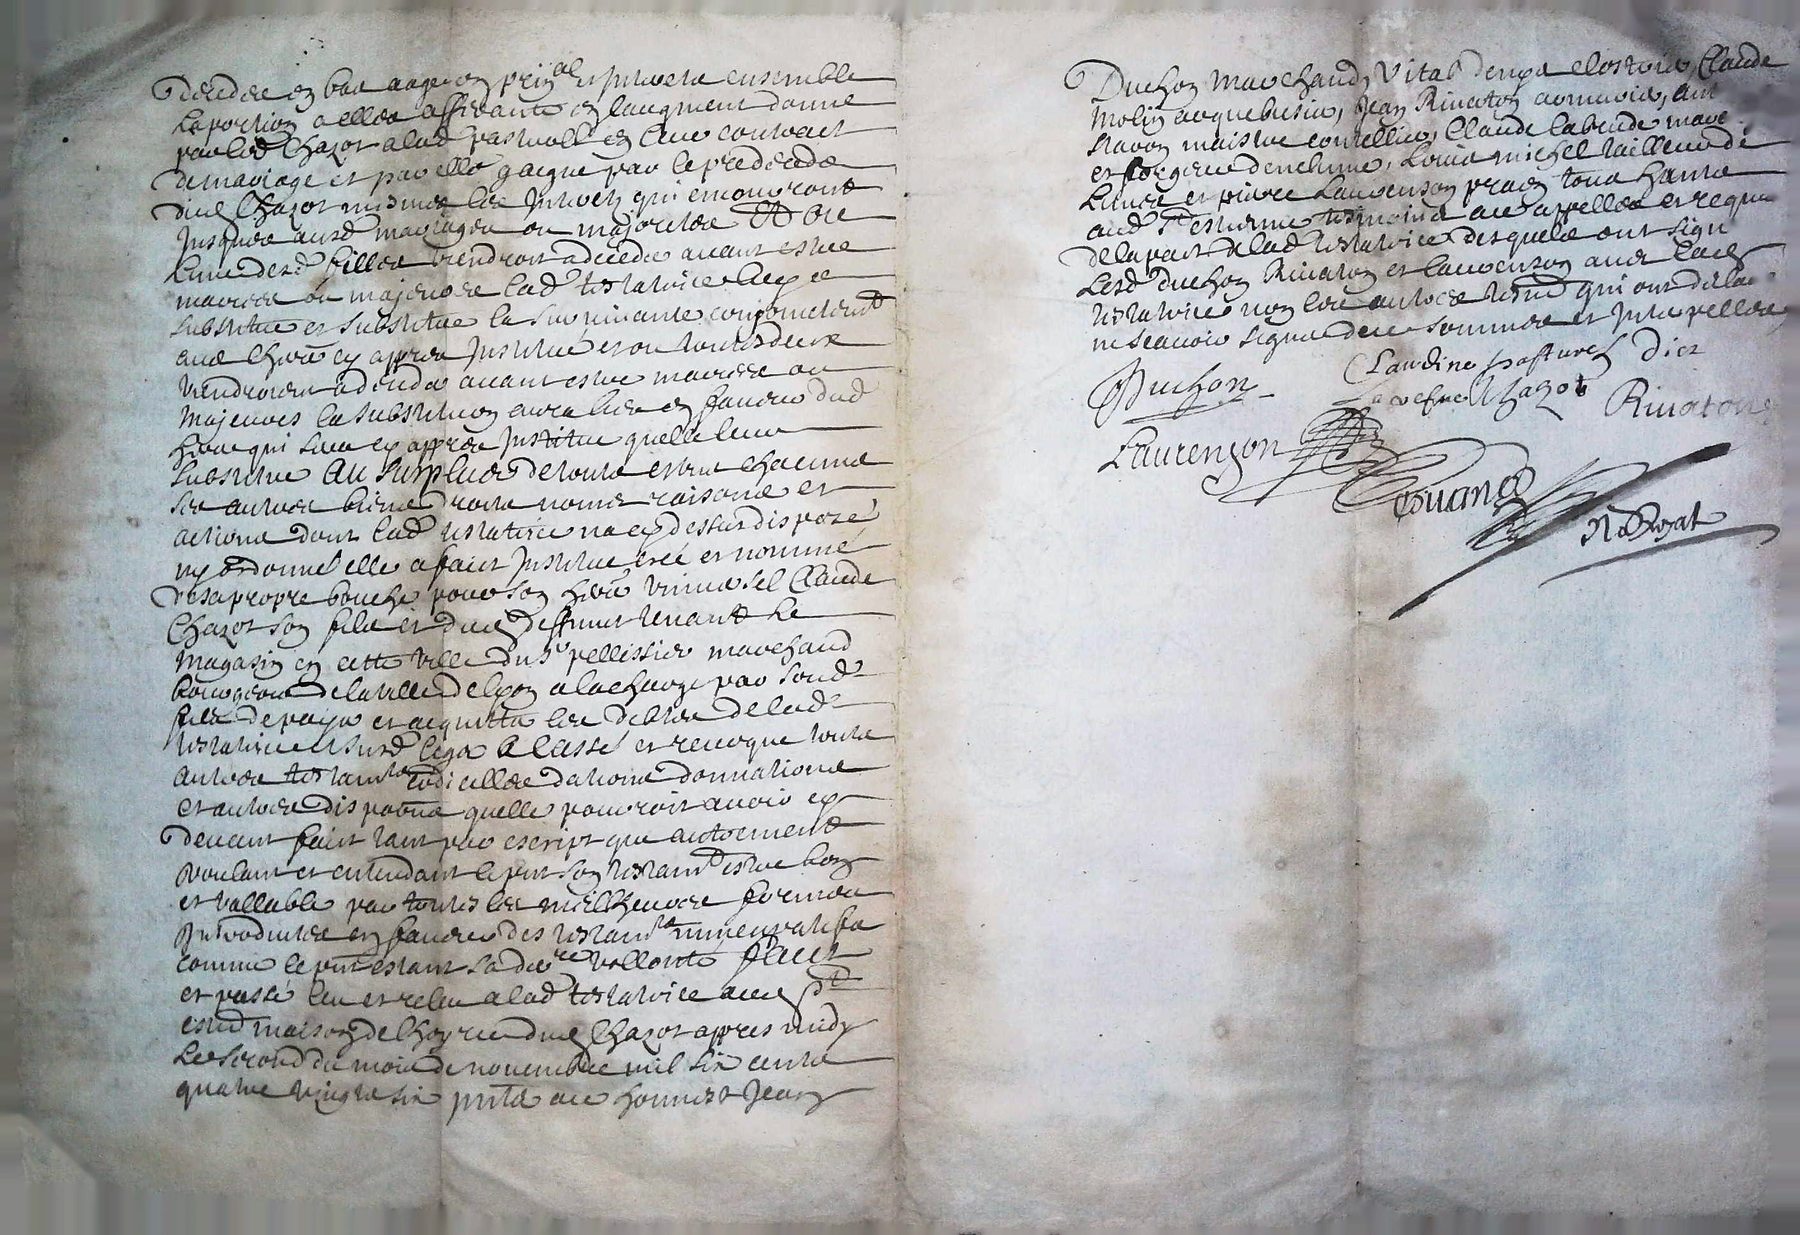 decedée en bas aage en prin.al et Interetz ensemble
la portion a elles afferante en laugment donné
par led Chazot a lad pasturell en leur contract
de mariage et par elle gaigné par le predecedz
dud Chazot mesmes les Interetz qui en courront
Jusques ausd mariages ou majorites Et ou
lune desd filles viendroit a deceder avant estre
mariée ou majeure lad testatrice luy a
substitué et substitue la survivante conjointemt
avec lheri cy apprez Institué et ou toutes deux
viendroient a deceder avant estre mariées ou
majeures la substitution aura lieu en faveur dud
heri qui sera cy apprez Institué quelle leur
substitue Au surplus de touts et uns chacuns
ses autres biens droits noms raisons et
actions dont lad testatrice na cy dessus disposé
ny ordonné elle a fait Institué creé et nommé
de sa propre bouche pour son heri universel Claude
Chazot son fils et dud deffunt tenant le
magasin en cette ville du sr pellissier marchand
bourgeois de la ville de lyon a la charge par sond
fils de payer et acquitter les debtes de lad
testatrice et susd legz A Cassé et revoque touts
autres testamts codicilles dations donnations
et autres dispoons quelle pourroit avoir cy
devant fait tant par escript que autrement
voulant et entendant le pnt son testamt estre bon
et vallable par toutes les meilheures formes
Introduites en faveur des testamts nuncupatifs
comme le pnt estant sa dre vollonté faict
et passé leu et releu a lad testatrice aud St
estne maison de lhoyrie dud Chazot appres midy
Le second du mois de novembre mil six cents
quatre vingts six pnts ad honnest Jean
Duchon marchand, Vital
Claude
Molin arquebusier, Jean Rivaton armurier, ant
maistre coutellier, Claude Labeude marc
et forgeur denclume, Louis michel tailleur de
Limes et pierre Laurenson pratn tous habits
aud St estienne tesmoins appelles et requis
de la part de lad testatrice desquels ont signé
Lesd duchon Rivaton et Laurenson avec lad
testatrice non les autres tesms qui ont declaré
ne scavoir signer de ce sommes et Interpelles
Duchon
Claudine pasturel dict
vefve Chazot
Rivaton
Laurenson